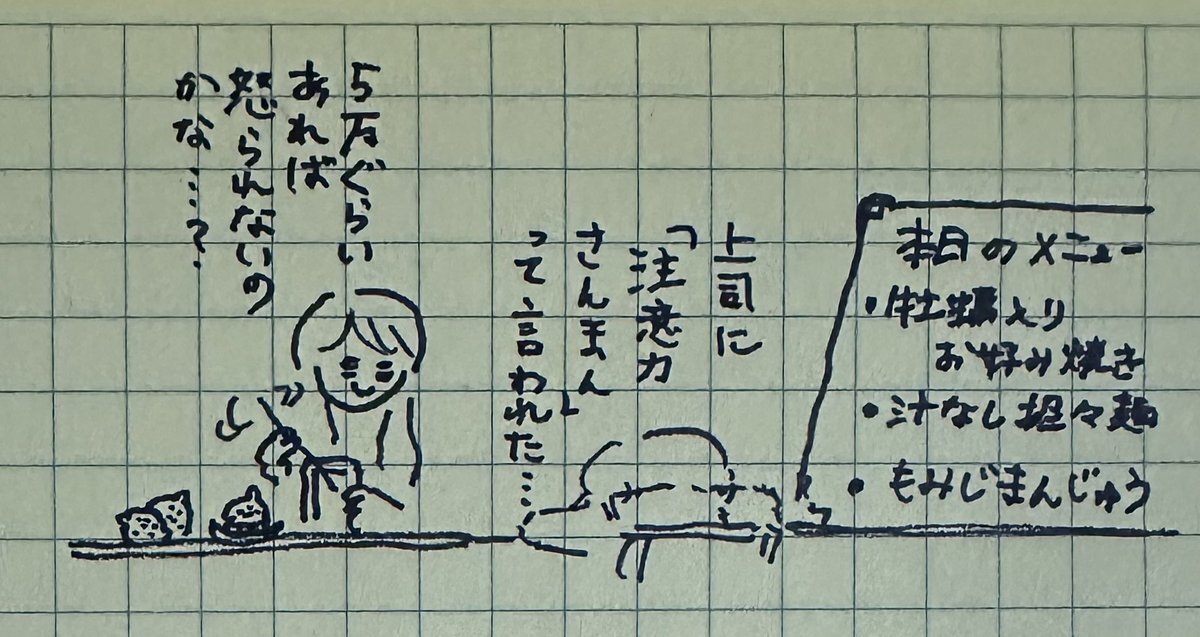 本日のメニュー
・牡蠣入り
お好み焼き
・汁なし担々麺
・もみじまんじゅう
上司に
「注意力
さんまん」
って言われた…
5万ぐらい
あれば
怒られないの
かな…?